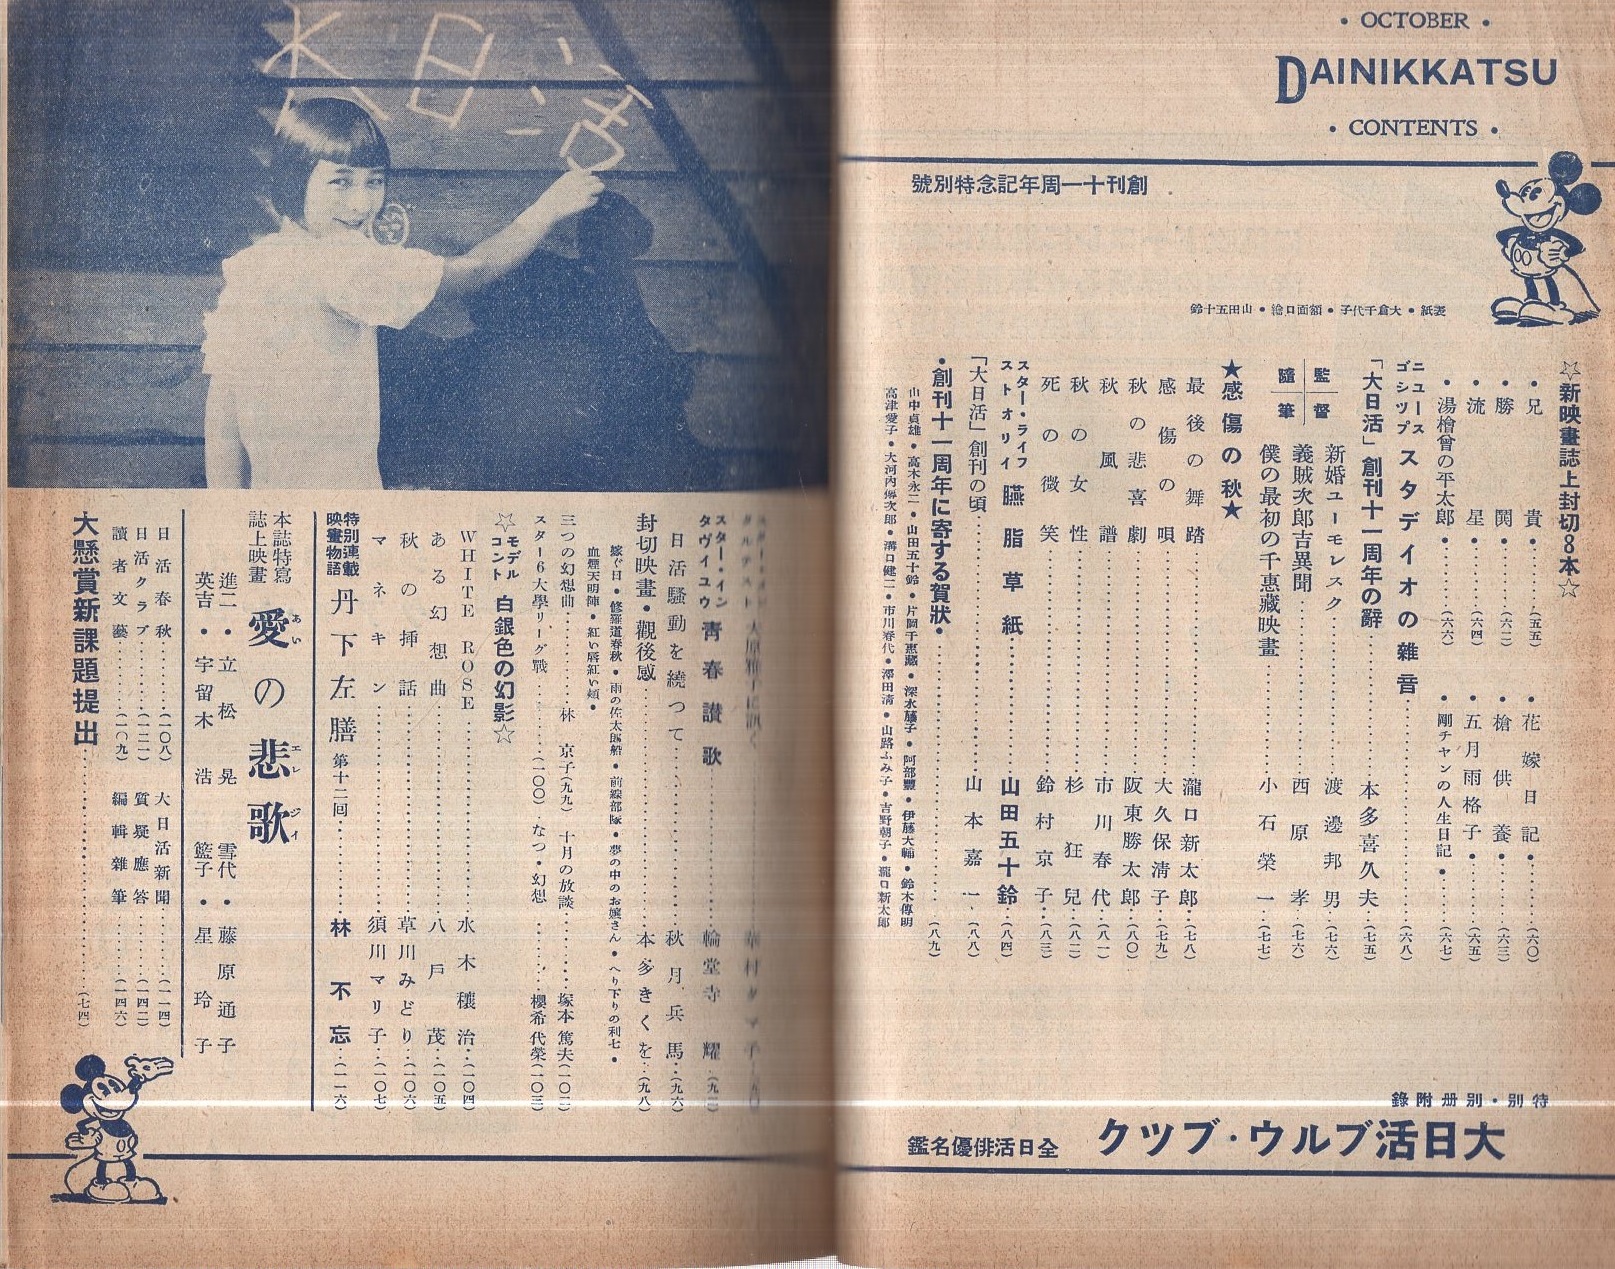 • OCTOBER •
DAINIKKATSU
• CONTENTS •
創刊十一周年記念特別號
表紙・大倉千代子・額面口繪・山田五十鈴
☆新映畫誌上封切8本☆
・兄貴・……(五五)
・勝閧・……(六二)
・流星・……(六四)
・湯檜曾の平太郎・……(六六)
・花嫁日記・……(六〇)
・槍供養・……(六三)
・五月雨格子・……(六五)
・剛チャンの人生日記・(六七)
ニユース
ゴシツプ
スタデイオの雜音……(六八)
「大日活」創刊十一周年の辭……本多喜久夫・(七五)
監督
隨筆
新婚ユーモレスク……渡邊邦男・(七六)
義賊次郎吉異聞……西原孝・(七六)
僕の最初の千惠藏映畫……小石榮一・(七七)
★感傷の秋★
最後の舞踏……瀧口新太郎・(七八)
感傷の唄……大久保淸子・(七九)
秋の悲喜劇……阪東勝太郎・(八〇)
秋風譜……市川春代・(八一)
秋の女性……杉狂兒・(八二)
死の微笑……鈴村京子・(八三)
スター・ライフ
ストオリイ
臙脂草紙……山田五十鈴・(八四)
「大日活」創刊の頃……山本嘉一・(八八)
・創刊十一周年に寄する賀狀・……(八九)
山中貞雄・高木永二・山田五十鈴・片岡千惠藏・深水藤子・阿部豐・伊藤大輔・鈴木傳明
高津愛子・大河内傳次郎・溝口健二・市川春代・澤田淸・山路ふみ子・吉野朝子・瀧口新太郎
特別・別册附錄
大日活ブルウ・ブツク
全日活俳優名鑑
大日活
スター・イン
タヴイユウ
靑春讃歌……輪堂寺耀・(九二)
日活騷動を繞つて……秋月兵馬・(九六)
封切映畫・觀後感……本多きくを・(九八)
嫁ぐ日・修羅道春秋・雨の佐太郎船・前線部隊・夢の中のお孃さん・へり下りの利七・
血煙天明陣・紅い唇紅い頬・
三つの幻想曲……林京子(九九)
十月の放談……塚本篤夫(一〇二)
スター6大學リーグ戰……(一〇〇)
なつ・幻想……櫻希代榮(一〇三)
☆モデル
コント
白銀色の幻影☆
WHITE ROSE……水木穰治・(一〇四)
ある幻想曲……八戶茂・(一〇五)
秋の挿話……草川みどり・(一〇六)
マネキン……須川マリ子・(一〇七)
特別連載
映畫物語
丹下左膳 第十二回……林不忘・(一一六)
本誌特寫
誌上映畫
愛の悲歌
あい
エレジイ
進二・立松晃
英吉・宇留木浩
雪代・藤原通子
籃子・星玲子
日活春秋……(一〇八)
日活クラブ……(一二一)
讀者文藝……(一〇九)
大日活新聞……(一一四)
質疑應答……(一四二)
編輯雜筆……(一四六)
大懸賞新課題提出……(七四)